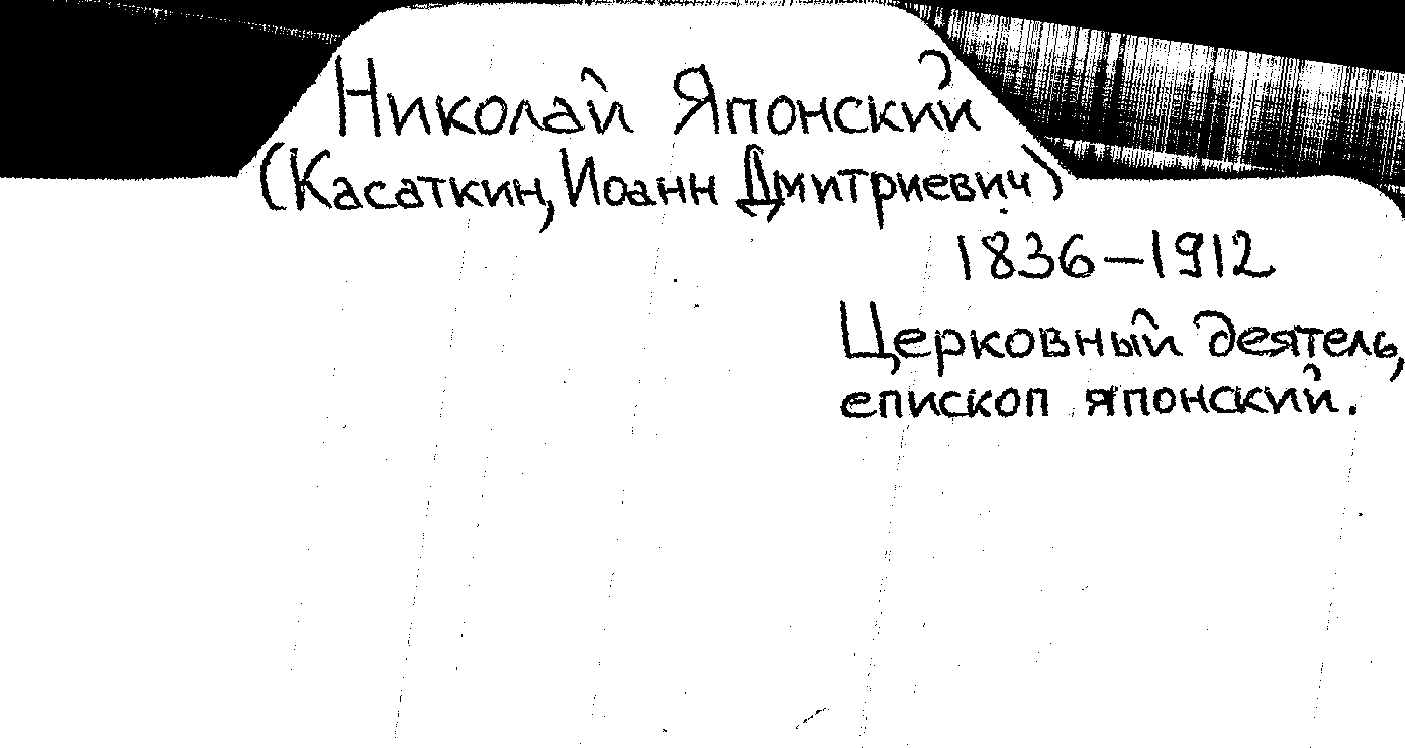 Николай Японский
(Касаткин, Иоанн Дмитриевич)
1836–1912
Церковный деятель,
епископ японский.